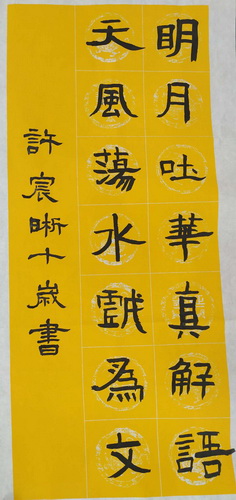 明月吐華真解語
天風蕩水戲為文
許宸晰十歲書